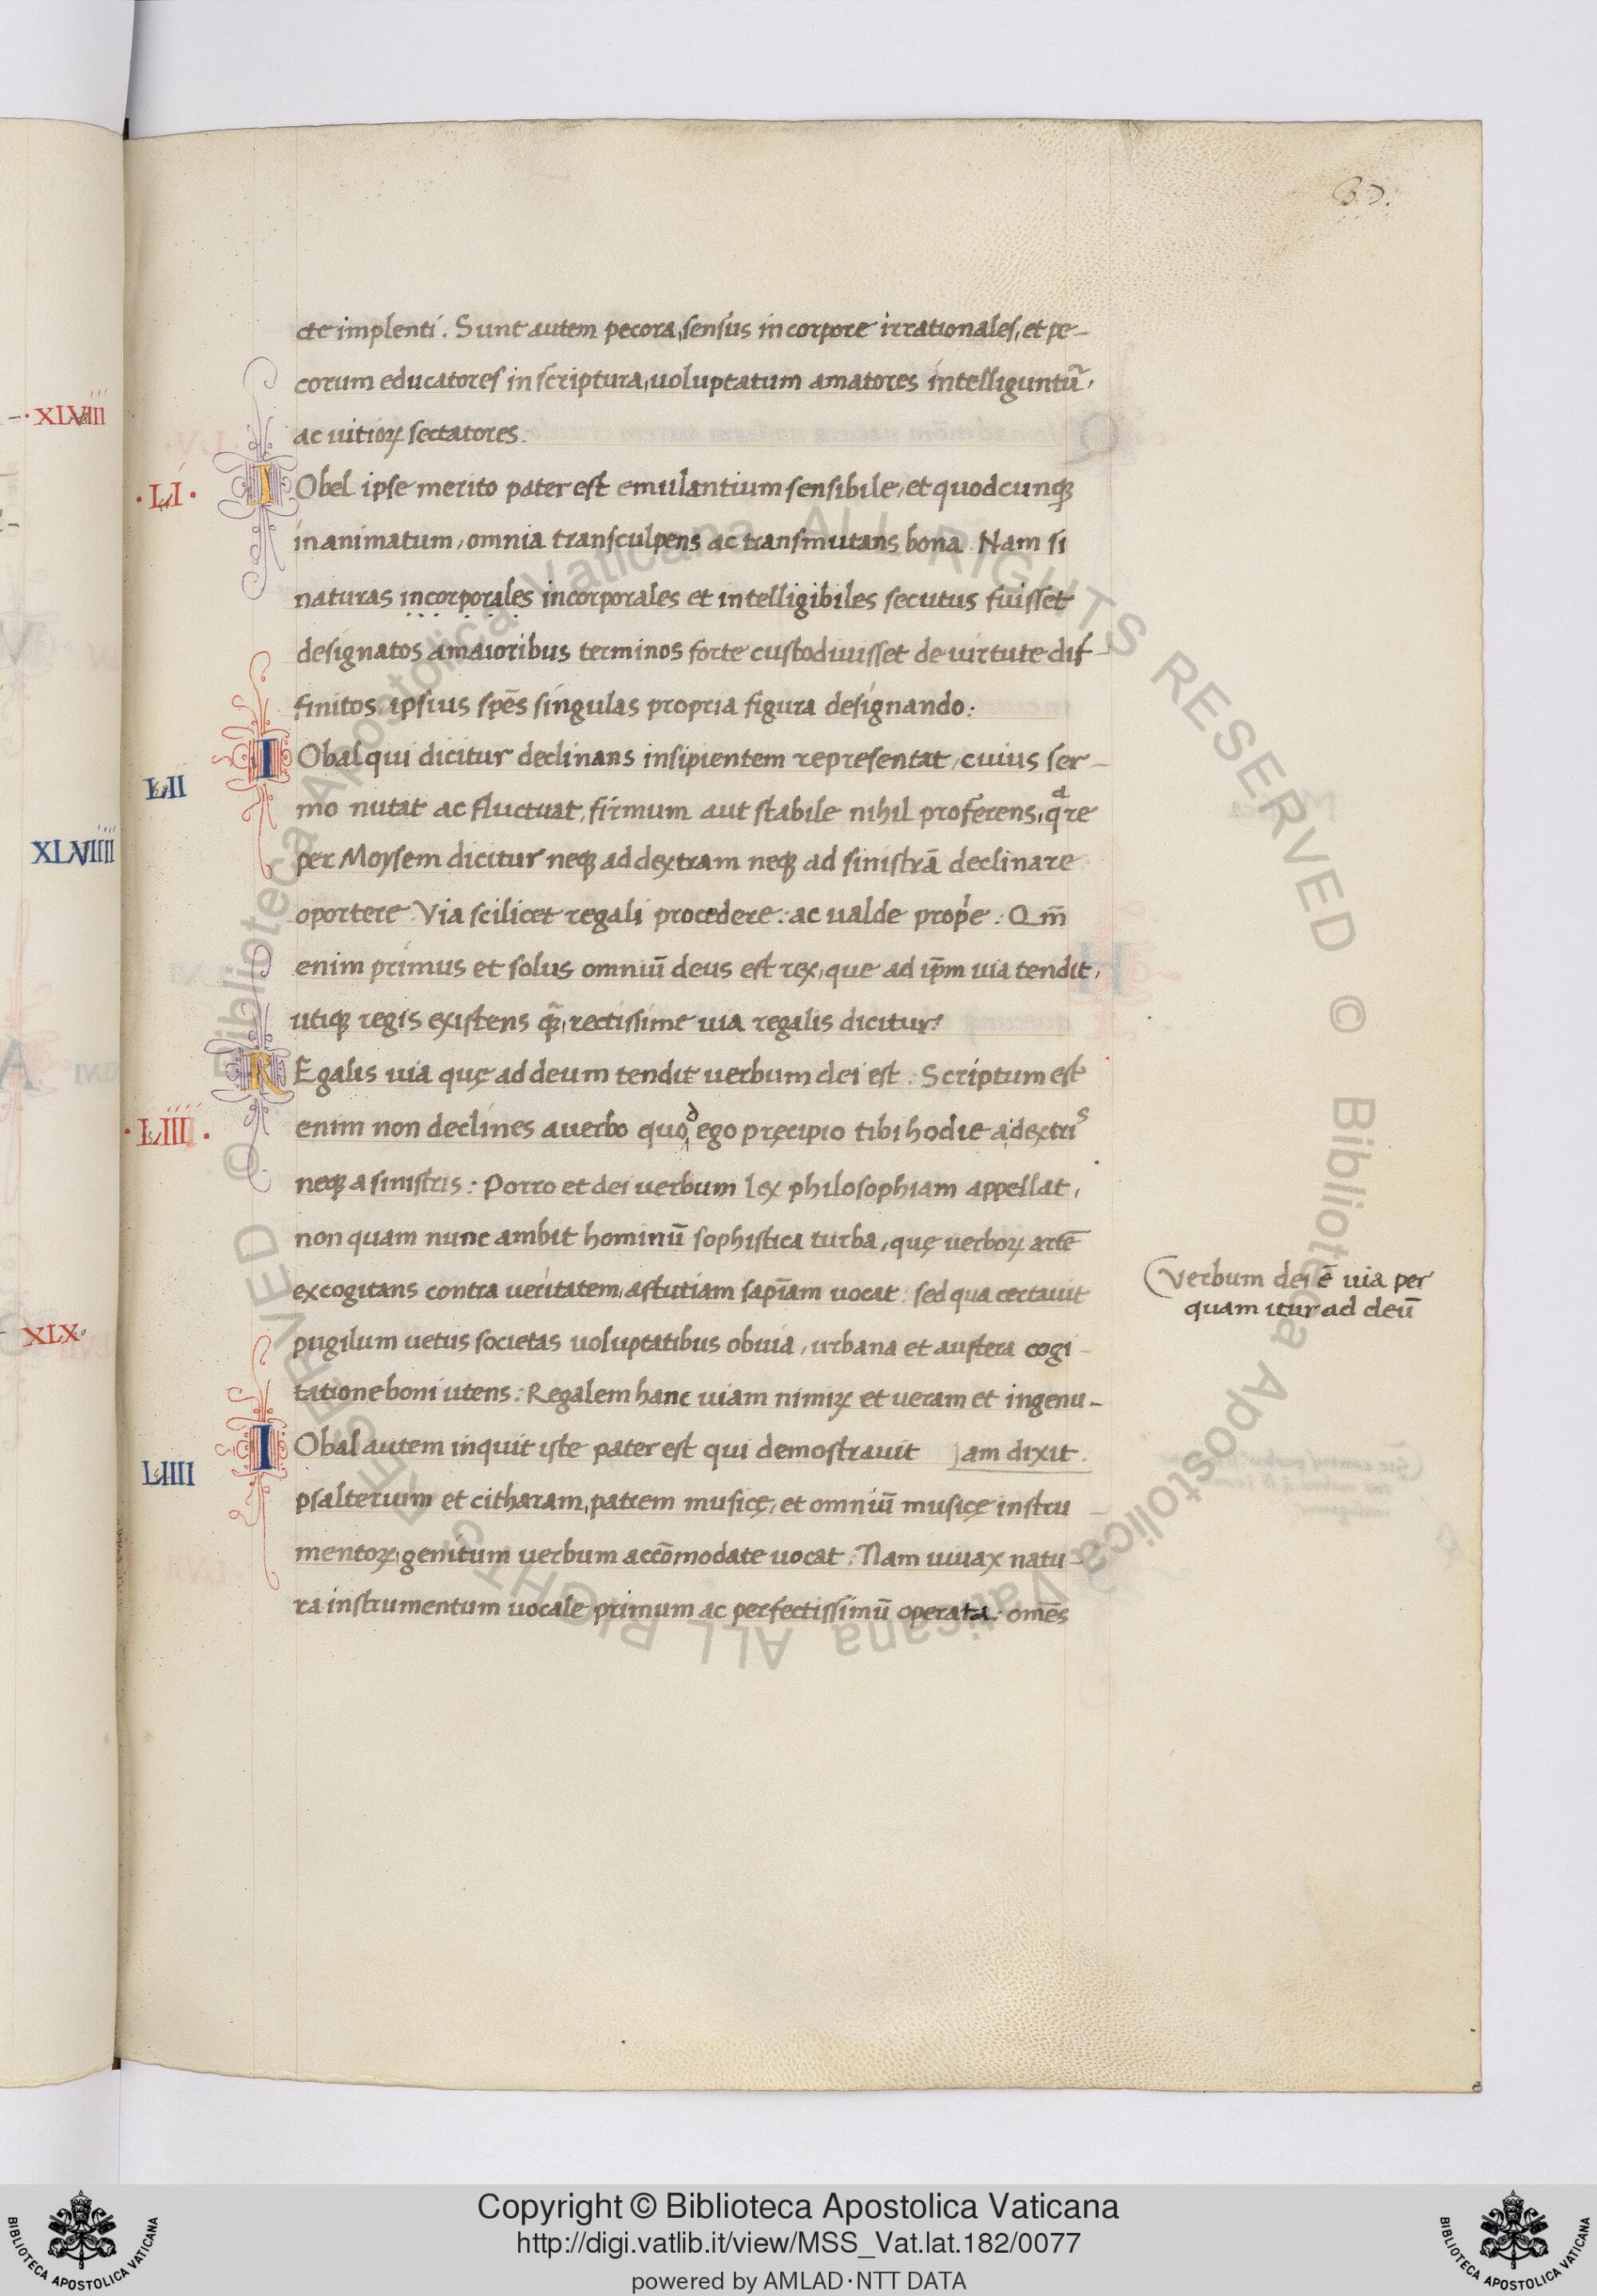 ·XLVIIII
XLVIIII
XLX·
33.
cte implenti. Sunt autem pecora, sensus in corpore irrationales, et pe-
corum educatores in scriptura, uoluptatum amatores intelliguntu᷑,
ac uitioꝝ sectatores.
·LI·
IObel ipse merito pater est emulantium sensibile, et quodcunqꝫ
inanimatum, omnia transculpens ac transmutans bona. Nam si
naturas incorporales incorporales et intelligibiles secutus fuisset
designatos amaioribus terminos forte custodiuisset de uirtute dif-
finitos, ipsius spēs singulas propria figura designando:
LII
IObal qui dicitur declinans insipientem representat, cuius ser-
mo nutat ac fluctuat, firmum aut stabile nihil proferens, qᵃre
per Moysem dicitur neqꝫ ad dextram neqꝫ ad sinistrā declinare
oportere. Via scilicet regali procedere: ac ualde propͥe. Qm̄
enim primus et solus omniū deus est rex, que ad ip̄m uia tendit,
utiqꝫ regis existens qꝫ̄, rectissime uia regalis dicitur:
·LIII·
REgalis uia quę ad deum tendit uerbum dei est. Scriptum est
enim non declines auerbo quod ego pręcipio tibi hodie adextris
neqꝫ asinistris: Porro et dei uerbum lex philosophiam appellat,
non quam nunc ambit hominū sophistica turba, quę uerboꝝ artē
excogitans contra ueritatem, astutiam sapīam uocat: sed qua certauit
pugilum uetus societas uoluptatibus obuia, urbana et austera cogi-
tatione boni utens: Regalem hanc uiam nimiꝝ et ueram et ingenu-
am dixit.
LIIII
IObal autem inquit iste pater est qui demostrauit
psalterium et citharam, patrem musicę, et omniū musicę instru-
mentoꝝ, genitum uerbum accōmodate uocat: Nam uiuax natu-
ra instrumentum uocale primum ac perfectissimū operata: omēs
Verbum dei ē uia per
quam itur ad deū
Copyright © Biblioteca Apostolica Vaticana
http://digi.vatlib.it/view/MSS_Vat.lat.182/0077
powered by AMLAD·NTT DATA
BIBLIOTECA APOSTOLICA VATICANA
BIBLIOTECA APOSTOLICA VATICANA
© Biblioteca Apostolica Vaticana ALL RIGHTS RESERVED © Biblioteca Apostolica Vaticana ALL RIGHTS RESERVED